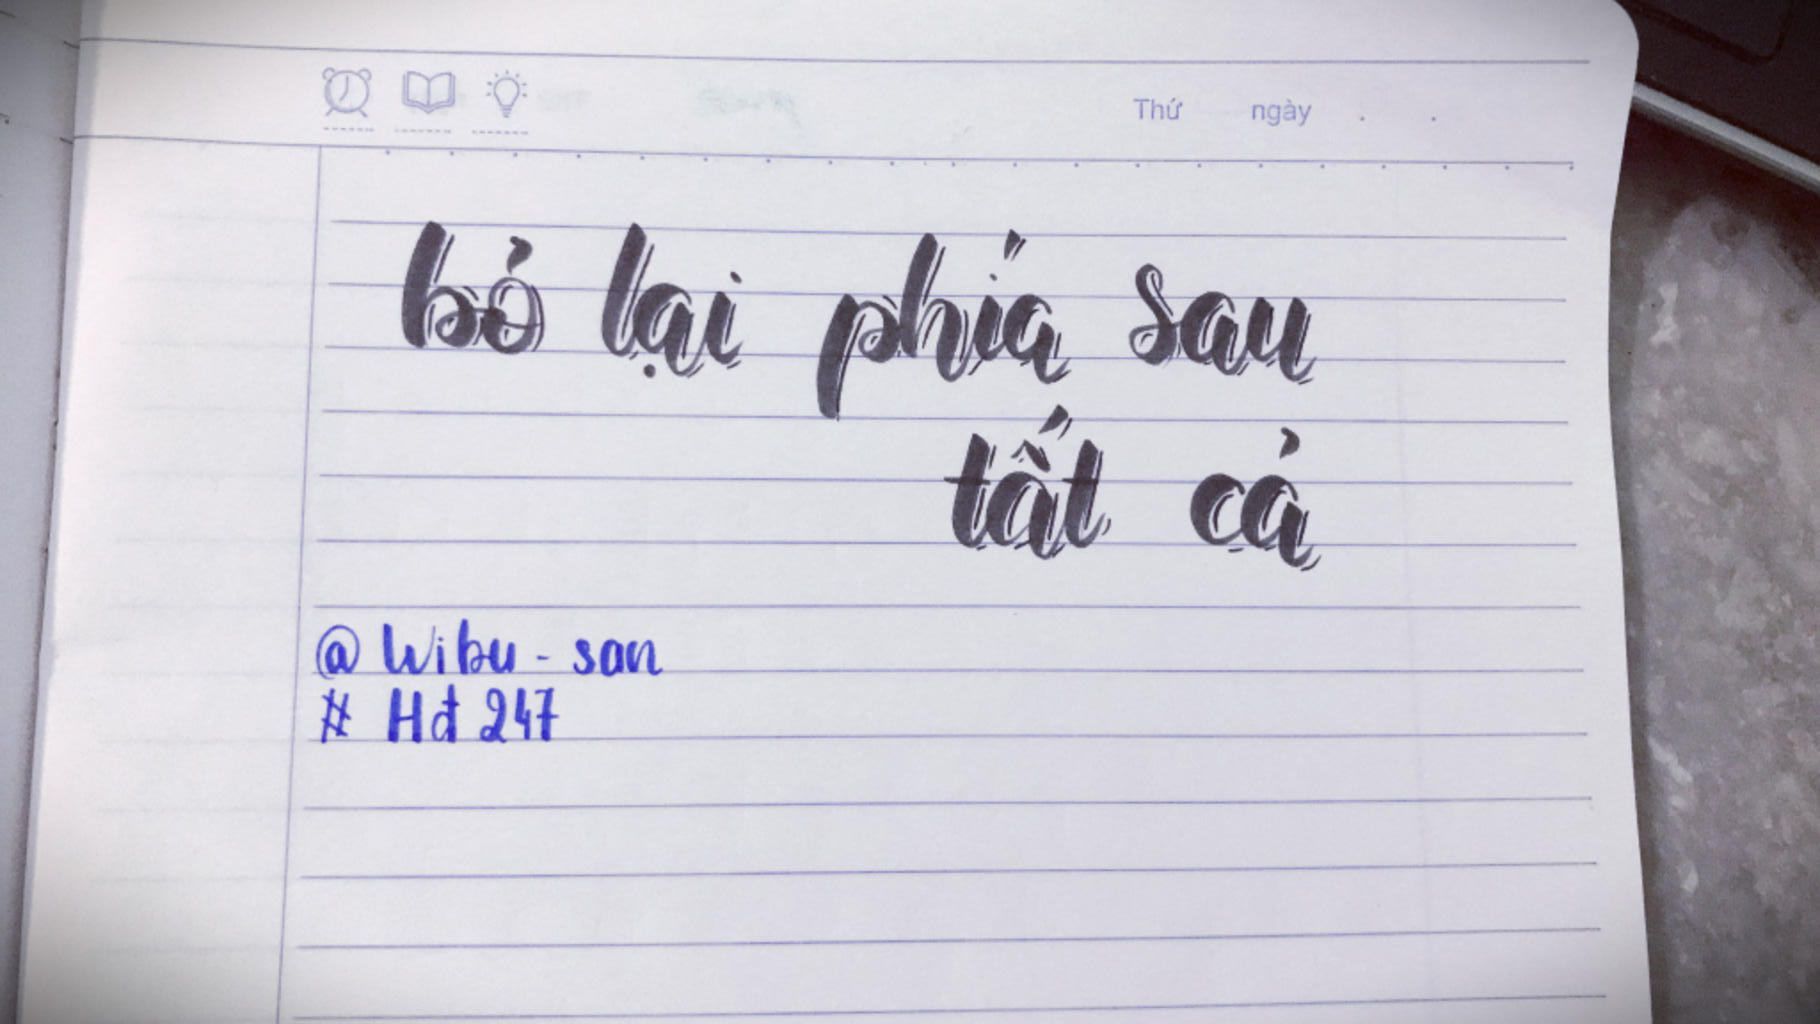 Thứ ngày . .
bỏ lại phía sau
tất cả
@ Wibu - san
# Hđ 247